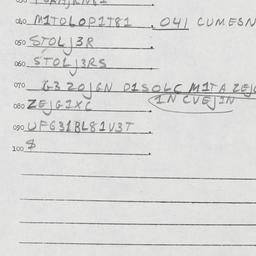 040 M1TOLOP1T81 . 041 CUMESN
050 STOLJ3R
060 STOLJ3RS
070 G3ZOJGN O1SOLC M1TA ZEJG
080 ZEJG1XC . 1N CVEJ1N
090 UFG31BL81V3T
100 $